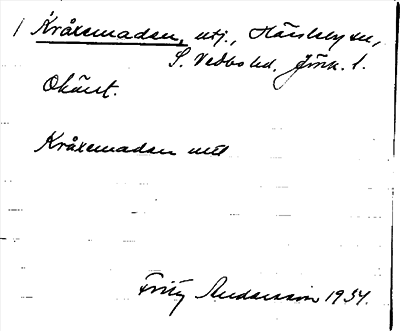 / Kråxemaden, utj., Hässleby sn,
S. Vedbo hd. Jönk. l.
Okänt.
Kråxemaden utt
Fritz Andersson 1934.